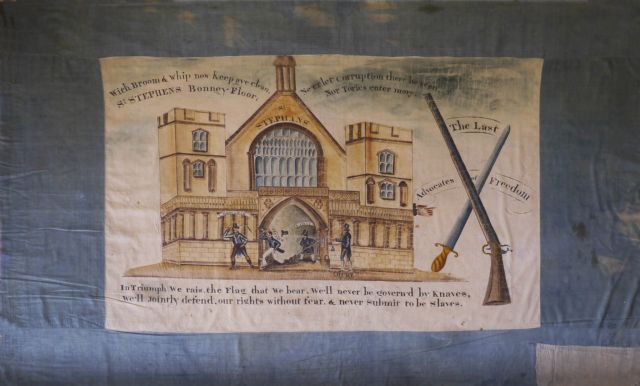 With Broom & whip now Keep ye clean,
St STEPHENS Bonney-Floor,
Ne'er let corruption there be seen,
Nor Tories enter more
St
STEPHANS
The Last
Advocates of Freedom
In Triumph we rais, the Flag that We bear, We'll never be govern'd by Knaves,
We'll Jointly defend, our rights without fear, & never Submit to be Slaves.